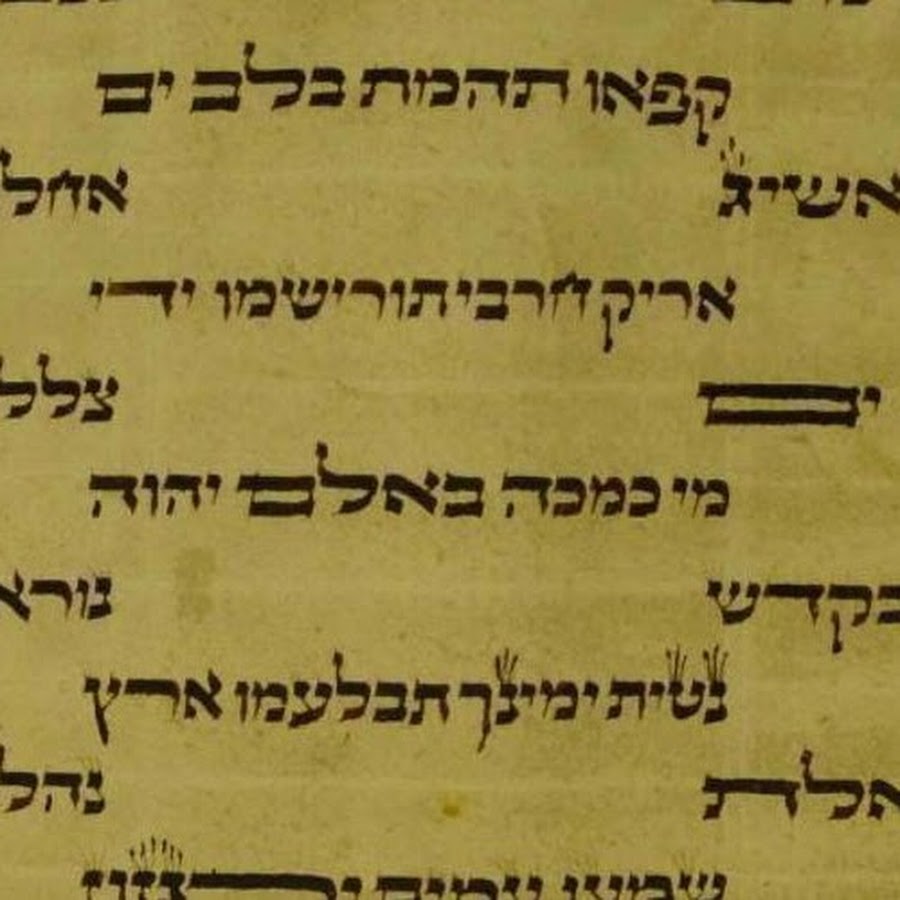 קפאו תהמת בלב ים
אשיג אחל
אריק חרבי תורישמו ידי
ים צלל
מי כמכה באלם יהוה
בקדש נורא
נטית ימינך תבלעמו ארץ
אלת נהל
שמעו עמים ירגזון